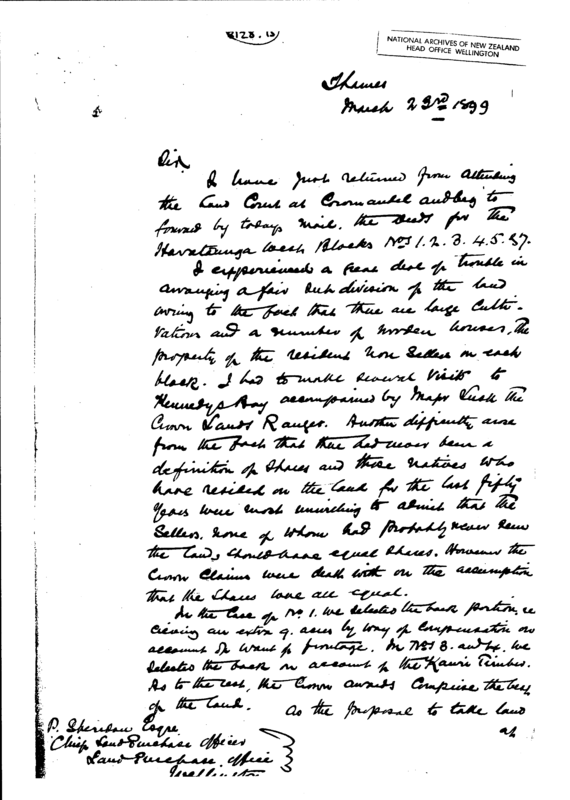 2128.13
NATIONAL ARCHIVES OF NEW ZEALAND
HEAD OFFICE WELLINGTON
Thames
March 23rd 1899
Sir
I have just returned from attending
the Land Court at Coromandel and beg to
forward by todays mail, the Deeds for the
Harataunga West Blocks Nos 1. 2. 3. 4. 5. &7.
I experienced a great deal of trouble in
arranging a fair sub division of the land
owing to the fact that there are large Culti-
vations and a number of wooden houses, the
property of the resident Non Sellers on each
block. I had to make several visits to
Kennedys Bay accompanied by Major Lusk the
Crown Lands Ranger. Another difficulty arose
from the fact that there had never been a
definition of Shares and those Natives who
have resided on the land for the last fifty
years were most unwilling to admit that the
Sellers, none of whom had probably never seen
the land, should have equal shares. However the
Crown Claims were dealt with on the assumption
that the Shares were all equal.
In the Case of No 1. we selected the back portion, re
cieving an extra 9. acres by way of Compensation on
account of want of frontage. In Nos 3. and 4. we
selected the back on account of the Kauri Timber.
As to the rest, the Crown awards Comprise the best
of the land. As the proposal to take land
at
P. Sheridan Esqre
Chief Land Purchase Officer
Land Purchase Office
Wellington